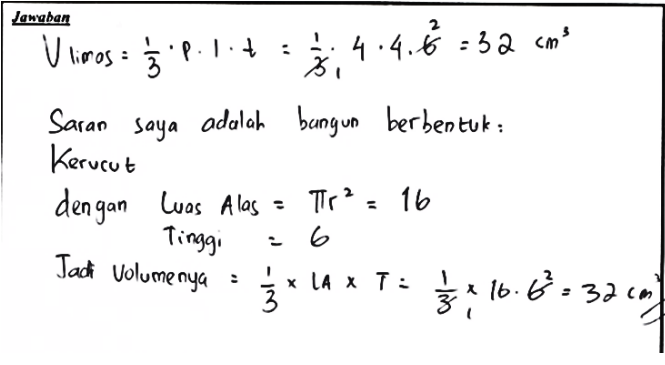 Jawaban
V limas = 1/3 · p · l · t = 1/3 · 4 · 4 · 6 2 = 32 cm³
Saran saya adalah bangun berbentuk :
Kerucut
dengan Luas Alas = πr² = 16
Tinggi = 6
Jadi Volumenya = 1/3 × LA × T = 1/3 × 16 · 6 2 = 32 cm³